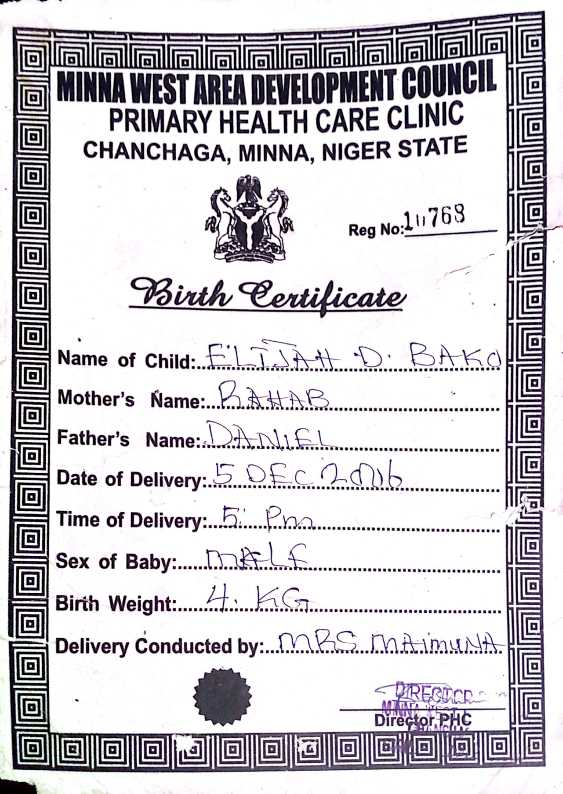 MINNA WEST AREA DEVELOPMENT COUNCIL
PRIMARY HEALTH CARE CLINIC
CHANCHAGA, MINNA, NIGER STATE
Reg No:
Birth Certificate
Name of Child: ELIJAH D. BAKO
Mother's Name: RAHAB
Father's Name: DANIEL
Date of Delivery: 5 DEC 2016
Time of Delivery: 5 Pm
Sex of Baby: MALE
Birth Weight: 4. KG
Delivery Conducted by: MRS MAIMUNA
DIRECTOR
MINNA WEST
Director PHC